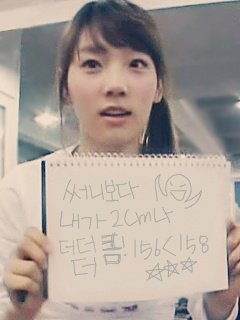 써니보다
내가 2cm나
더더큼. 156<158
더